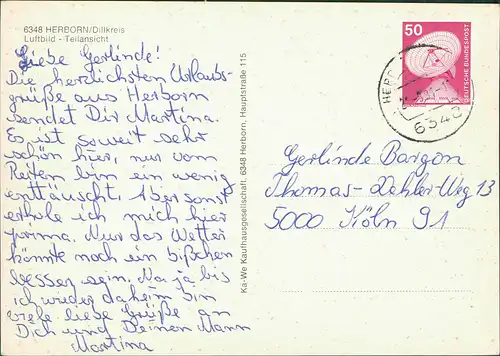 6348 HERBORN/Dillkreis
Luftbild - Teilansicht
Liebe Gerlinde!
Die herzlichsten Urlaubs-
grüße aus Herborn
sendet Dir Martina.
Es ist soweit sehr
schön hier, nur vom
Reiten bin ein wenig
enttäuscht. Aber sonst
erhole ich mich hier
prima. Nur das Wetter
könnte noch ein bißchen
besser sein. Na ja bis
ich wieder daheim bin
viele liebe Grüße an
Dich und Deinen Mann
Martina
Ka-We Kaufhausgesellschaft, 6348 Herborn, Hauptstraße 115
50
DEUTSCHE BUNDESPOST
HERBO
6348
Gerlinde Bargon
Thomas-Dehler-Weg 13
5000 Köln 91